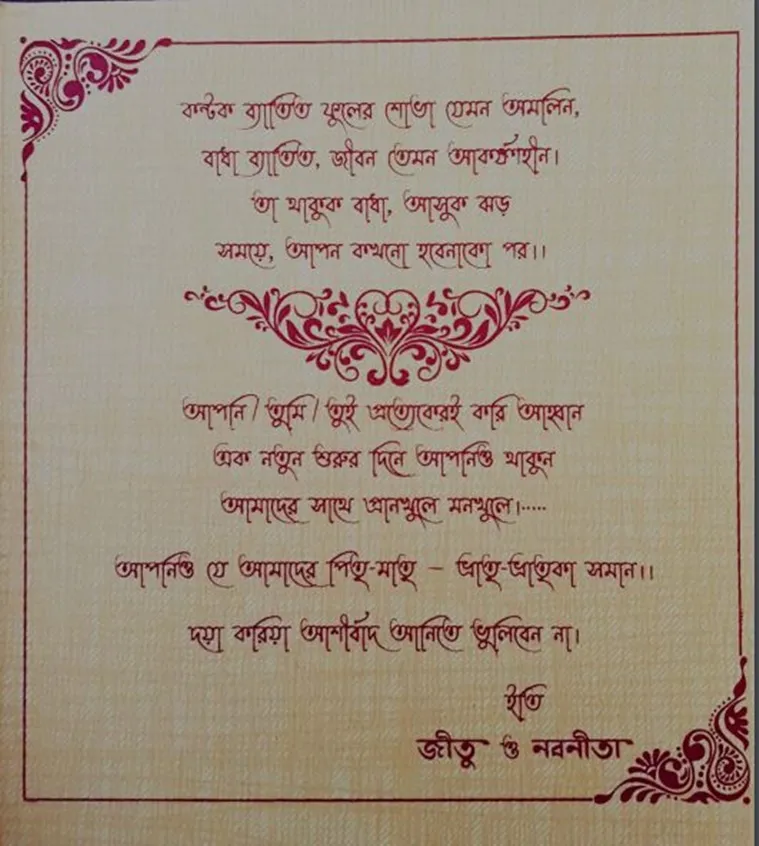 কন্টক ব্যাতিত ফুলের শোভা যেমন অমলিন,
বাধা ব্যাতিত, জীবন তেমন আকর্ষণহীন।
তা থাকুক বাধা, আসুক ঝড়
সময়ে, আপন কখনো হবেনাকো পর।।
আপনি / তুমি / তুই প্রত্যেকেরই করি আহ্বান
এক নতুন শুরুর দিনে আপনিও থাকুন
আমাদের সাথে প্রানখুলে মনখুলে।.....
আপনিও যে আমাদের পিতৃ-মাতৃ – ভ্রাতৃ-ভ্রাতৃকা সমান।।
দয়া করিয়া আশীর্বাদ আনিতে ভুলিবেন না।
ইতি
জীতু ও নবনীতা